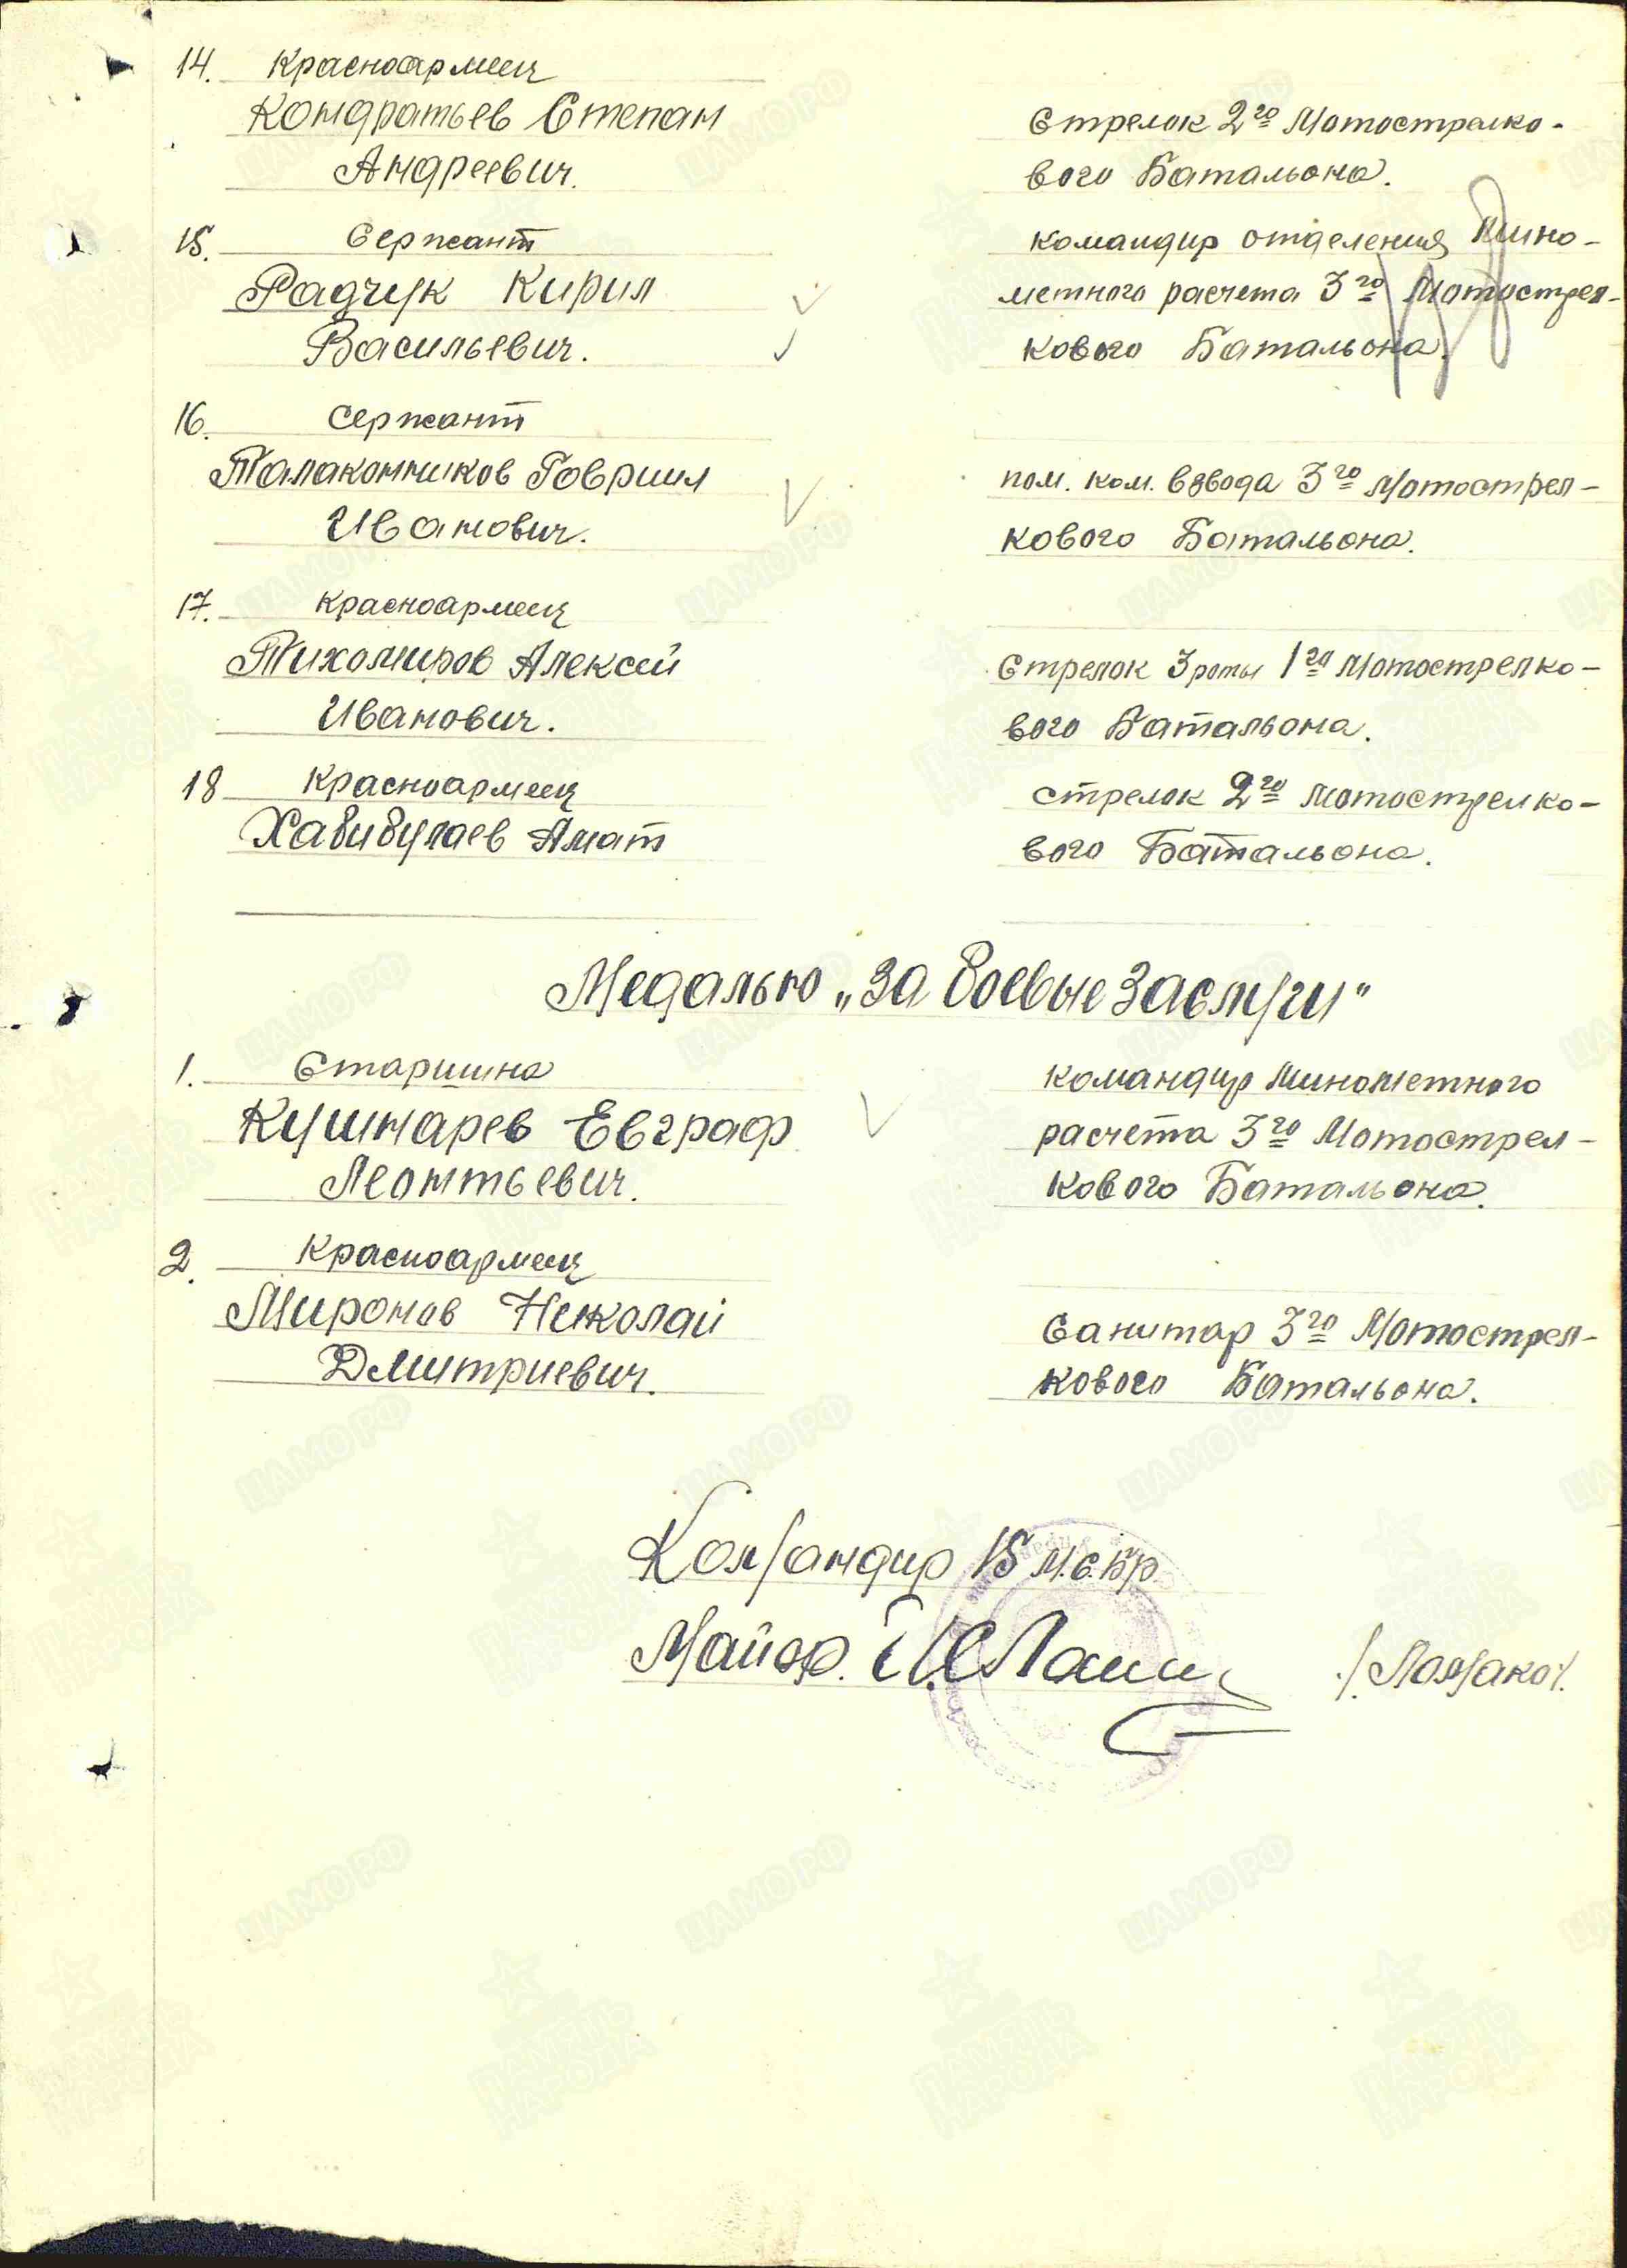 14. Красноармеец
Кондратьев Степан
Андреевич.
Стрелок 2го Мотострелко-
вого Батальона.
15. Сержант
Радчук Кирил
Васильевич.
командир отделения Мино-
метного расчета 3го Мотострел-
кового Батальона.
16. Сержант
Талаконников Говриил
Иванович.
пом. ком. взвода 3го Мотострел-
кового Батальона.
17. Красноармеец
Тихомиров Алексей
Иванович.
Стрелок 3 роты 1го Мотострелко-
вого Батальона.
18 Красноармеец
Хабибулаев Амат
стрелок 2го Мотострелко-
вого Батальона.
Медалью „За Боевые Заслуги"
1. Старшина
Кушнарев Евграф
Леонтьевич.
Командир Минометного
расчета 3го Мотострел-
кового Батальона.
2. Красноармеец
Миронов Николай
Дмитриевич.
Санитар 3го Мотострел-
кового Батальона.
Командир 15 М.С.Бр.
Майор.
ЦАМО РФ
ПАМЯТЬ НАРОДА